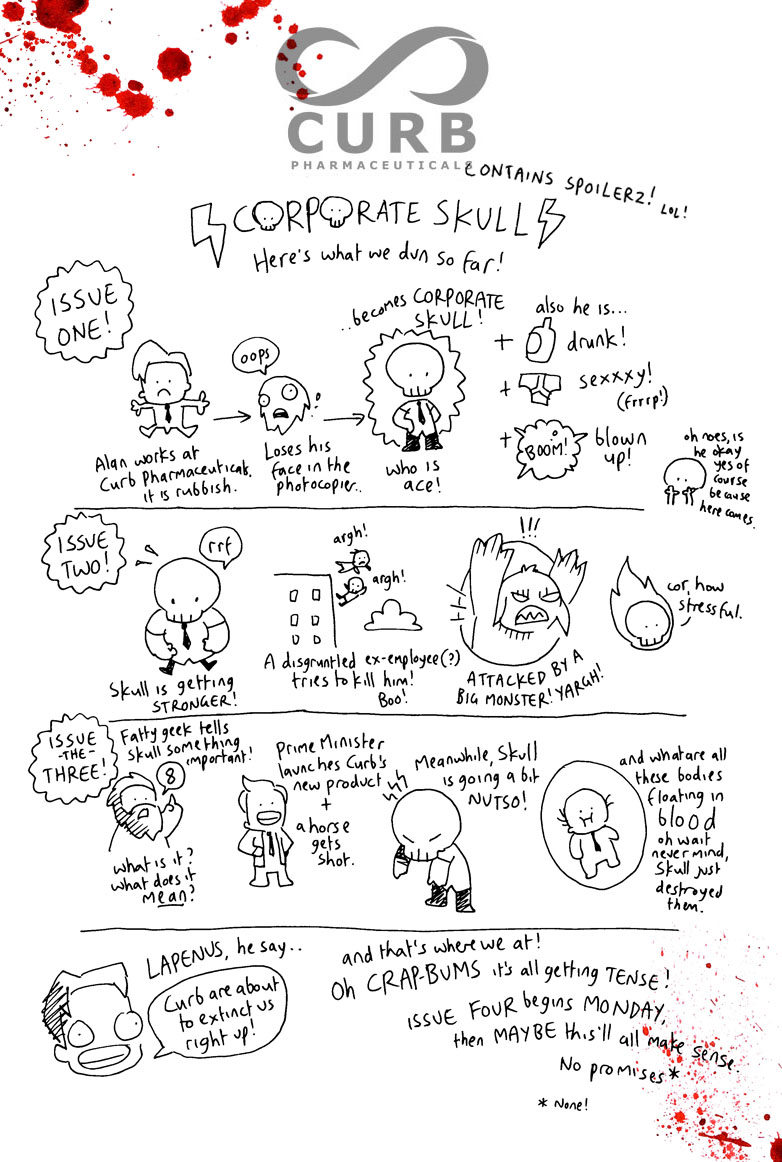 CURB
PHARMACEUTICALS
CONTAINS SPOILERZ! LOL!
CORPORATE SKULL
Here's what we dun so far!
ISSUE
ONE!
Alan works at
Curb Pharmaceuticals.
it is rubbish.
oops
Loses his
face in the
photocopier..
..becomes CORPORATE
SKULL!
who is
ace!
also he is...
+ drunk!
+ sexxxy!
(frrrp!)
+ BOOM! blown
up!
oh noes, is
he okay
yes of
course
because
here comes..
ISSUE
TWO!
rrf
Skull is getting
STRONGER!
argh!
argh!
A disgruntled ex-employee(?)
tries to kill him!
Boo!
!!!
ATTACKED BY A
BIG MONSTER! YARGH!
cor, how
stressful.
ISSUE
-THE-
THREE!
Fatty geek tells
Skull something
important!
8
what is it?
what does it
mean?
Prime Minister
launches Curb's
new product
+
a horse
gets
shot.
Meanwhile, Skull
is going a bit
NUTSO!
and what are all
these bodies
floating in
blood
oh wait
never mind,
Skull just
destroyed
them.
LAPENUS, he say..
Curb are about
to extinct us
right up!
and that's where we at!
Oh CRAP-BUMS it's all getting TENSE!
ISSUE FOUR begins MONDAY,
then MAYBE this'll all make sense.
No promises*
* None!